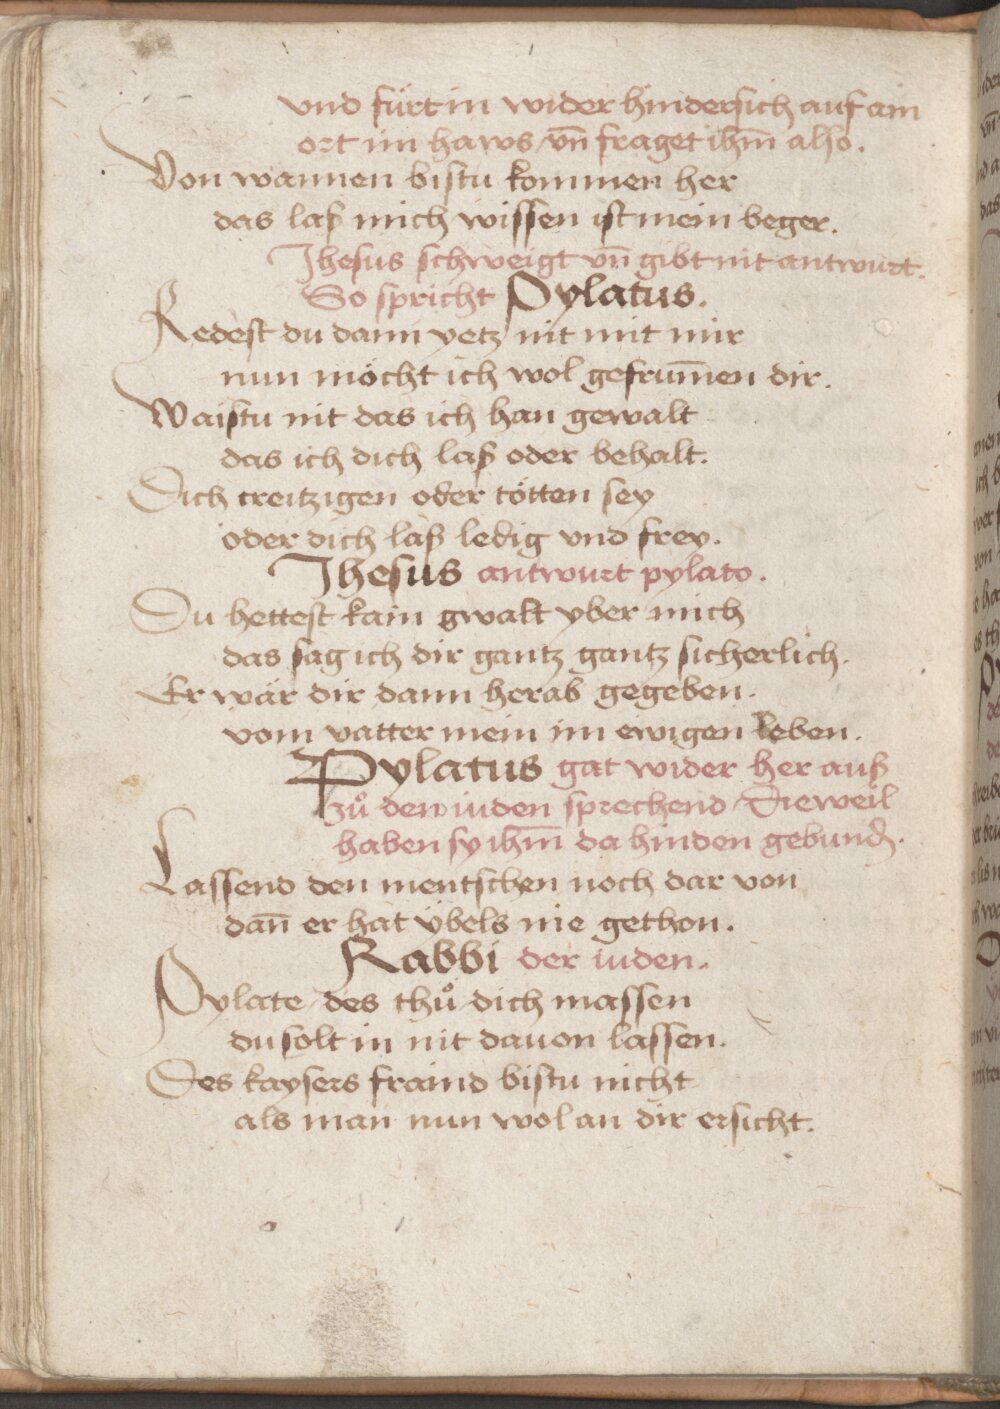 vnd fürt in wider hindersich auf ain
ort im haws / vn̄ fraget ihm̄ also.
Von wannen bistu kommen her
das laß mich wissen ist mein beger.
Jhesus schweigt vn̄ gibt nit antwurt.
So spricht Pylatus.
Redest du dann yetz nit mit mir
nun möcht ich wol gefrum̄en dir.
Waistu nit das ich han gewalt
das ich dich laß oder behalt.
Dich creitzigen oder tötten sey
oder dich laß ledig vnd frey.
Jhesus antwurt pylato.
Du hettest kain gwalt yber mich
das sag ich dir gantz gantz sicherlich.
Er wär dir dann herab gegeben.
vom vatter mein im ewigen leben.
Pylatus gat wider her auß
zů den iuden sprechend / Dieweil
haben sy ihm̄ da hinden gebund̄.
Lassend den mentschen noch dar von
dan̄ er hat ybels nie gethon.
Rabbi der iuden.
Pylate / des thů dich massen
du solt in nit dauon lassen.
Des kaysers fraind bistu nicht
als man nun wol an dir ersicht.